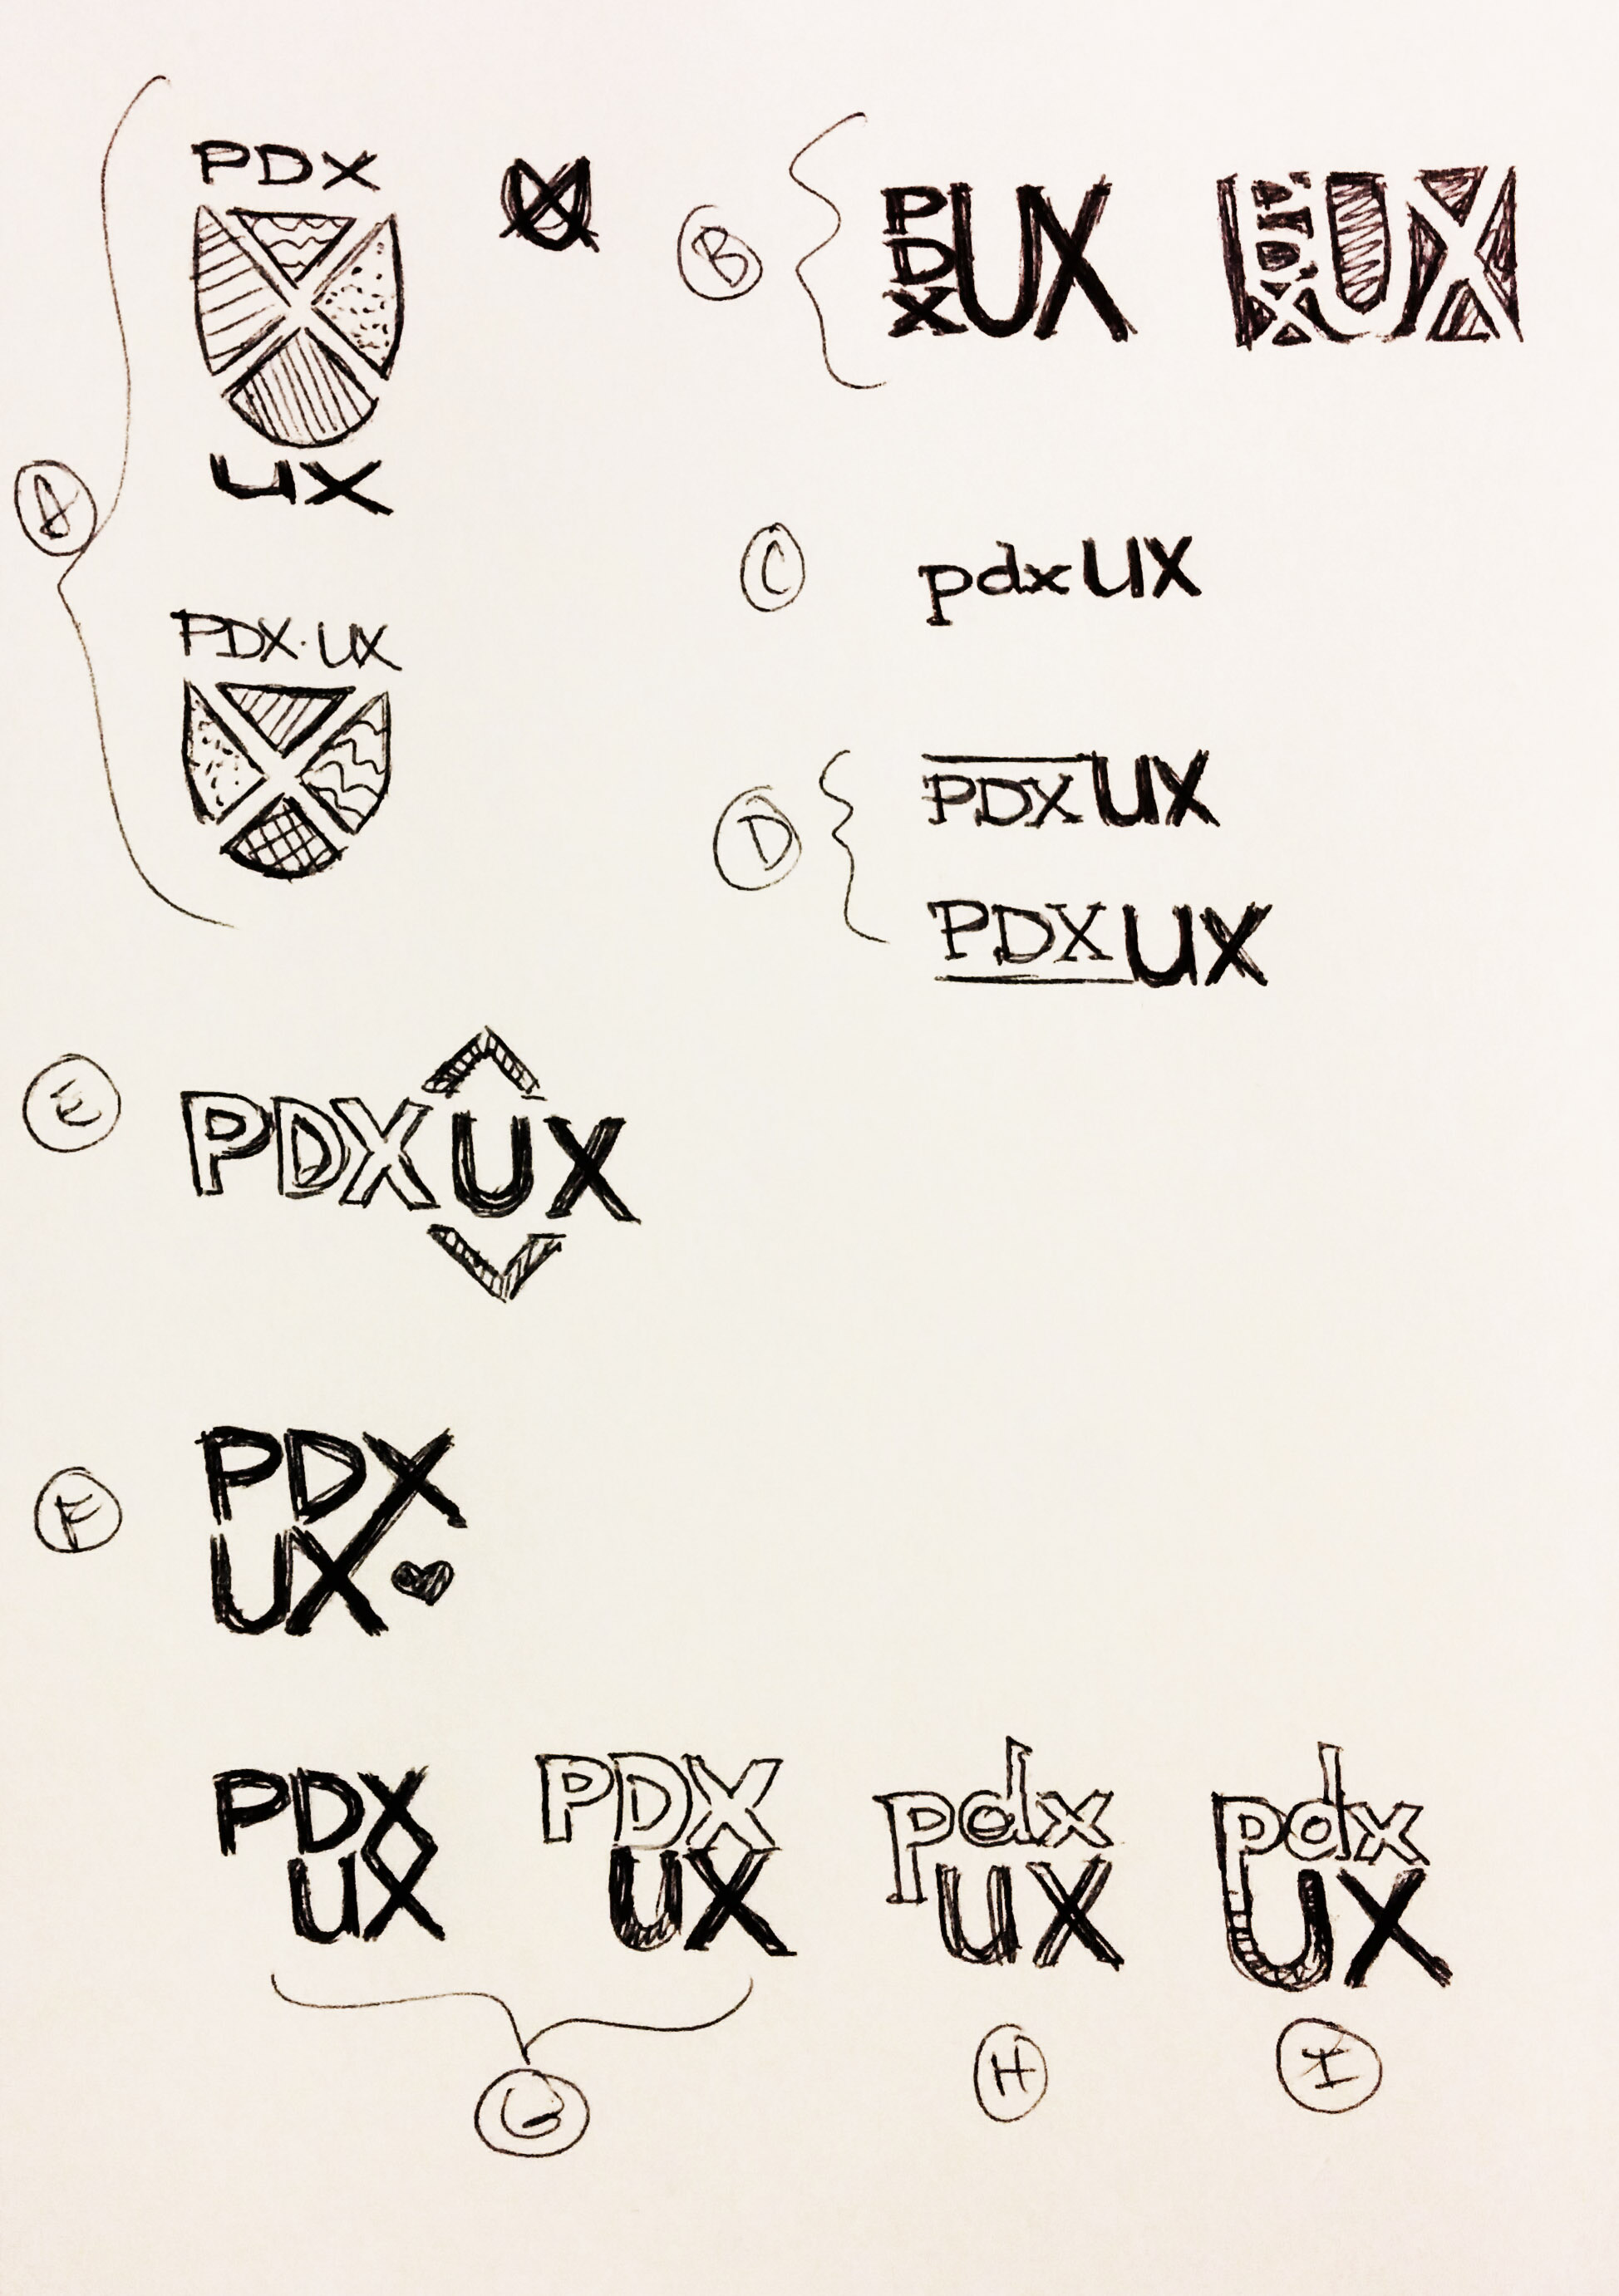 PDX
UX
A
PDX·UX
B
PDX UX
PDX UX
C
pdxUX
D
PDXUX
PDXUX
E
PDXUX
F
PDX
UX
PDX
UX
PDX
UX
G
pdx
UX
H
pdx
UX
I